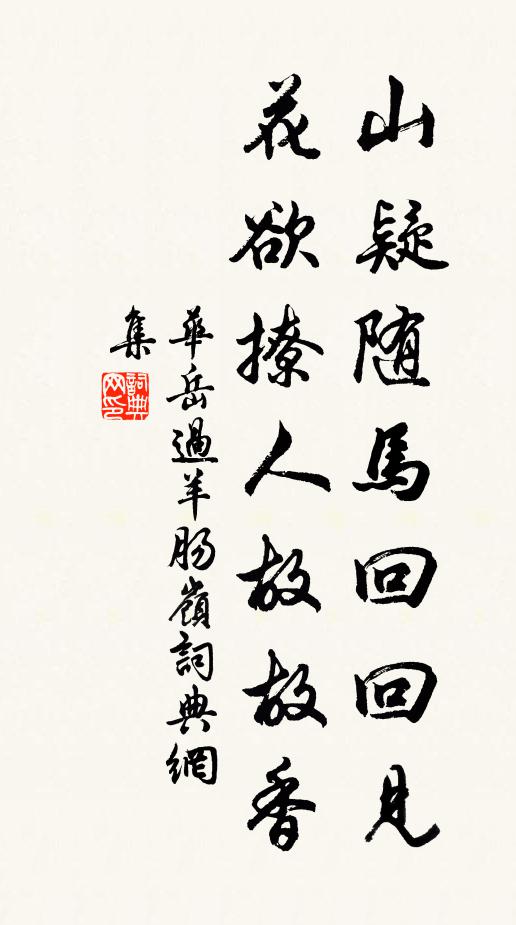 山疑随馬回回見
花欲撩人故故香
華岳過羊肠嶺詞典網
集
詞典
网印